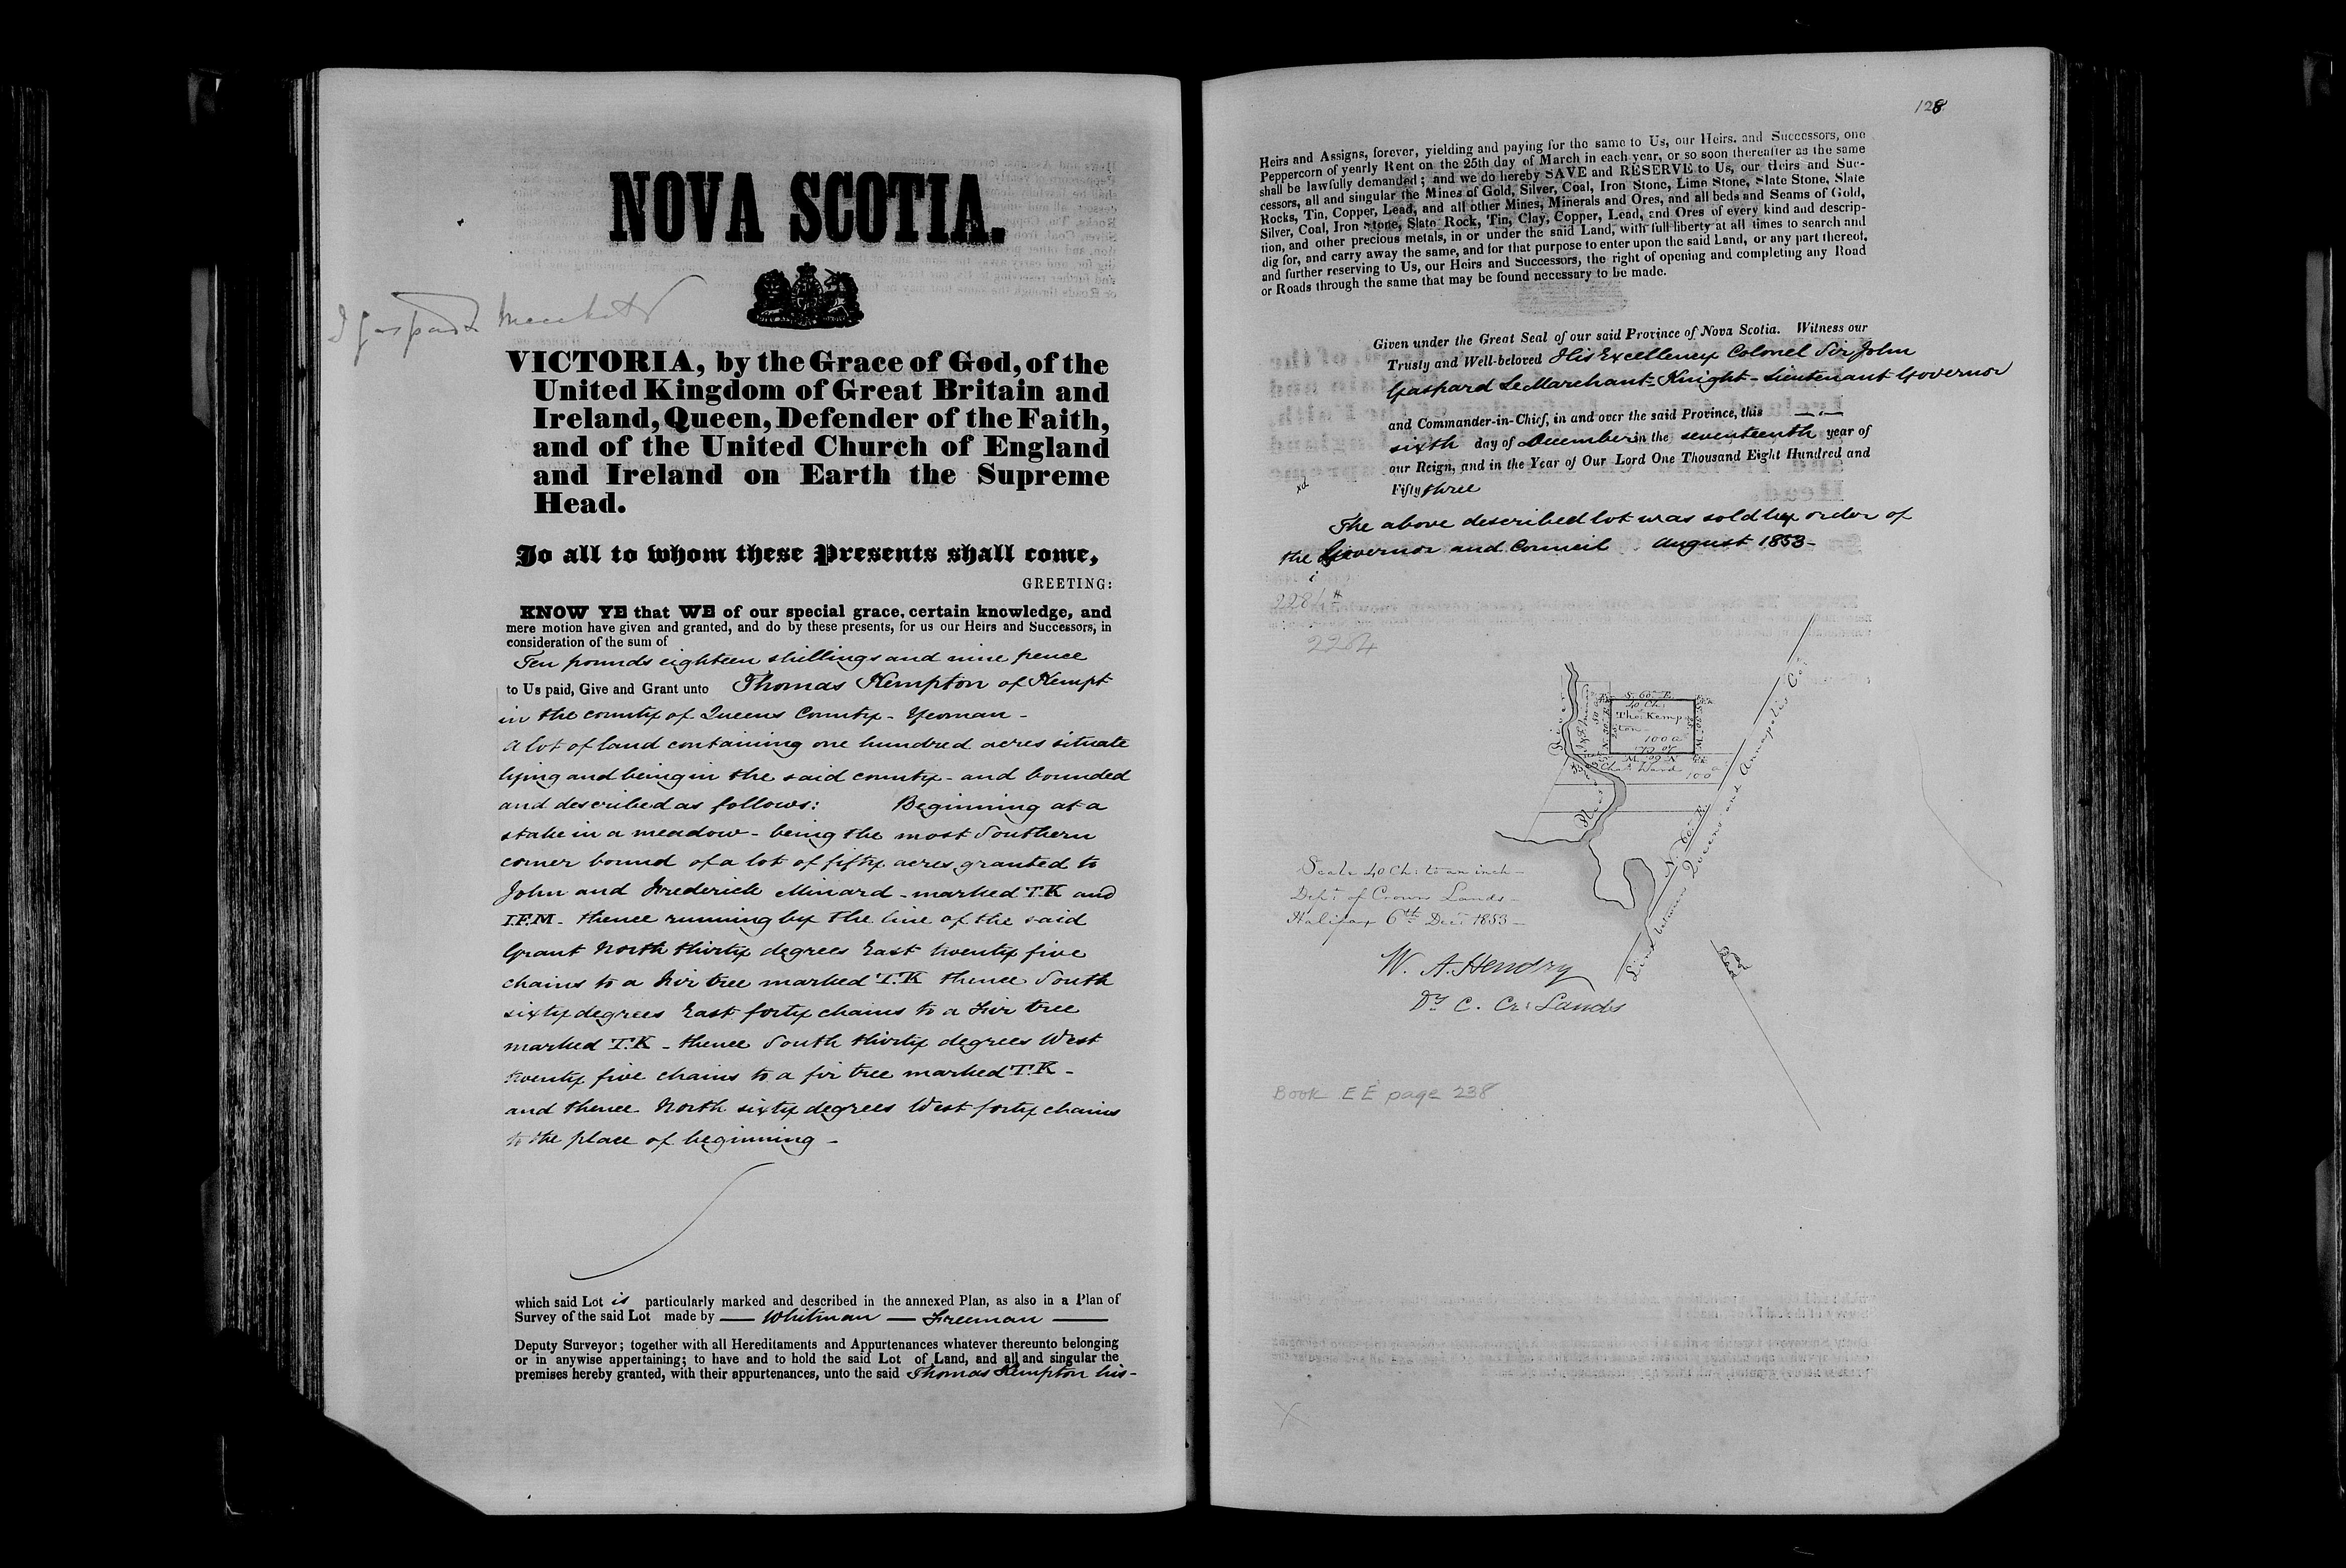 NOVA SCOTIA.
VICTORIA, by the Grace of God, of the
United Kingdom of Great Britain and
Ireland, Queen, Defender of the Faith,
and of the United Church of England
and Ireland on Earth the Supreme
Head.
To all to whom these Presents shall come,
GREETING:
KNOW YE that WE of our special grace, certain knowledge, and
mere motion have given and granted, and do by these presents, for us our Heirs and Successors, in
consideration of the sum of
Ten pounds eighteen shillings and nine pence
to Us paid, Give and Grant unto Thomas Kempton of Kempt
in the county of Queens County - Yeoman -
A lot of land containing one hundred acres situate
lying and being in the said county - and bounded
and described as follows: Beginning at a
stake in a meadow - being the most Southern
corner bound of a lot of fifty acres granted to
John and Frederick Minard - marked T.K and
I.F.M - thence running by the line of the said
Grant North thirty degrees East twenty five
chains to a Fir tree marked T.K thence South
sixty degrees East forty chains to a Fir tree
marked T.K - thence South thirty degrees West
twenty five chains to a fir tree marked T.K -
and thence North sixty degrees West forty chains
to the place of beginning -
which said Lot is particularly marked and described in the annexed Plan, as also in a Plan of
Survey of the said Lot made by — Whitman — Freeman —
Deputy Surveyor; together with all Hereditaments and Appurtenances whatever thereunto belonging
or in anywise appertaining; to have and to hold the said Lot of Land, and all and singular the
premises hereby granted, with their appurtenances, unto the said Thomas Kempton his -
128
Heirs and Assigns, forever, yielding and paying for the same to Us, our Heirs. and Successors, one
Peppercorn of yearly Rent on the 25th day of March in each year, or so soon thereafter as the same
shall be lawfully demanded; and we do hereby SAVE and RESERVE to Us, our Heirs and Suc-
cessors, all and singular the Mines of Gold, Silver, Coal, Iron Stone, Lime Stone, Slate Stone, Slate
Rocks, Tin, Copper, Lead, and all other Mines, Minerals and Ores, and all beds and Seams of Gold,
Silver, Coal, Iron Stone, Slate Rock, Tin, Clay, Copper, Lead, and Ores of every kind and descrip-
tion, and other precious metals, in or under the said Land, with full liberty at all times to search and
dig for, and carry away the same, and for that purpose to enter upon the said Land, or any part thereof,
and further reserving to Us, our Heirs and Successors, the right of opening and completing any Road
or Roads through the same that may be found necessary to be made.
Given under the Great Seal of our said Province of Nova Scotia. Witness our
Trusty and Well-beloved His Excellency Colonel Sir John
Gaspard LeMarchant - Knight - Lieutenant Governor
and Commander-in-Chief, in and over the said Province, this
sixth day of December in the seventeenth year of
our Reign, and in the Year of Our Lord One Thousand Eight Hundred and
Fifty three
The above described lot was sold by order of
the Governor and Council August 1853 -
2264
S. 60° E.
40 Ch:
Tho: Kemp
ton
100 a
N. 60 W.
Chas Ward
100 a
River
N. 60° E.
Line between Queens and Annapolis Co:
Scale 40 Ch: to an inch -
Dept of Crown Lands -
Halifax 6th Decr 1853 -
W. A. Hendry
Dy C. Cr: Lands
Book EE page 238